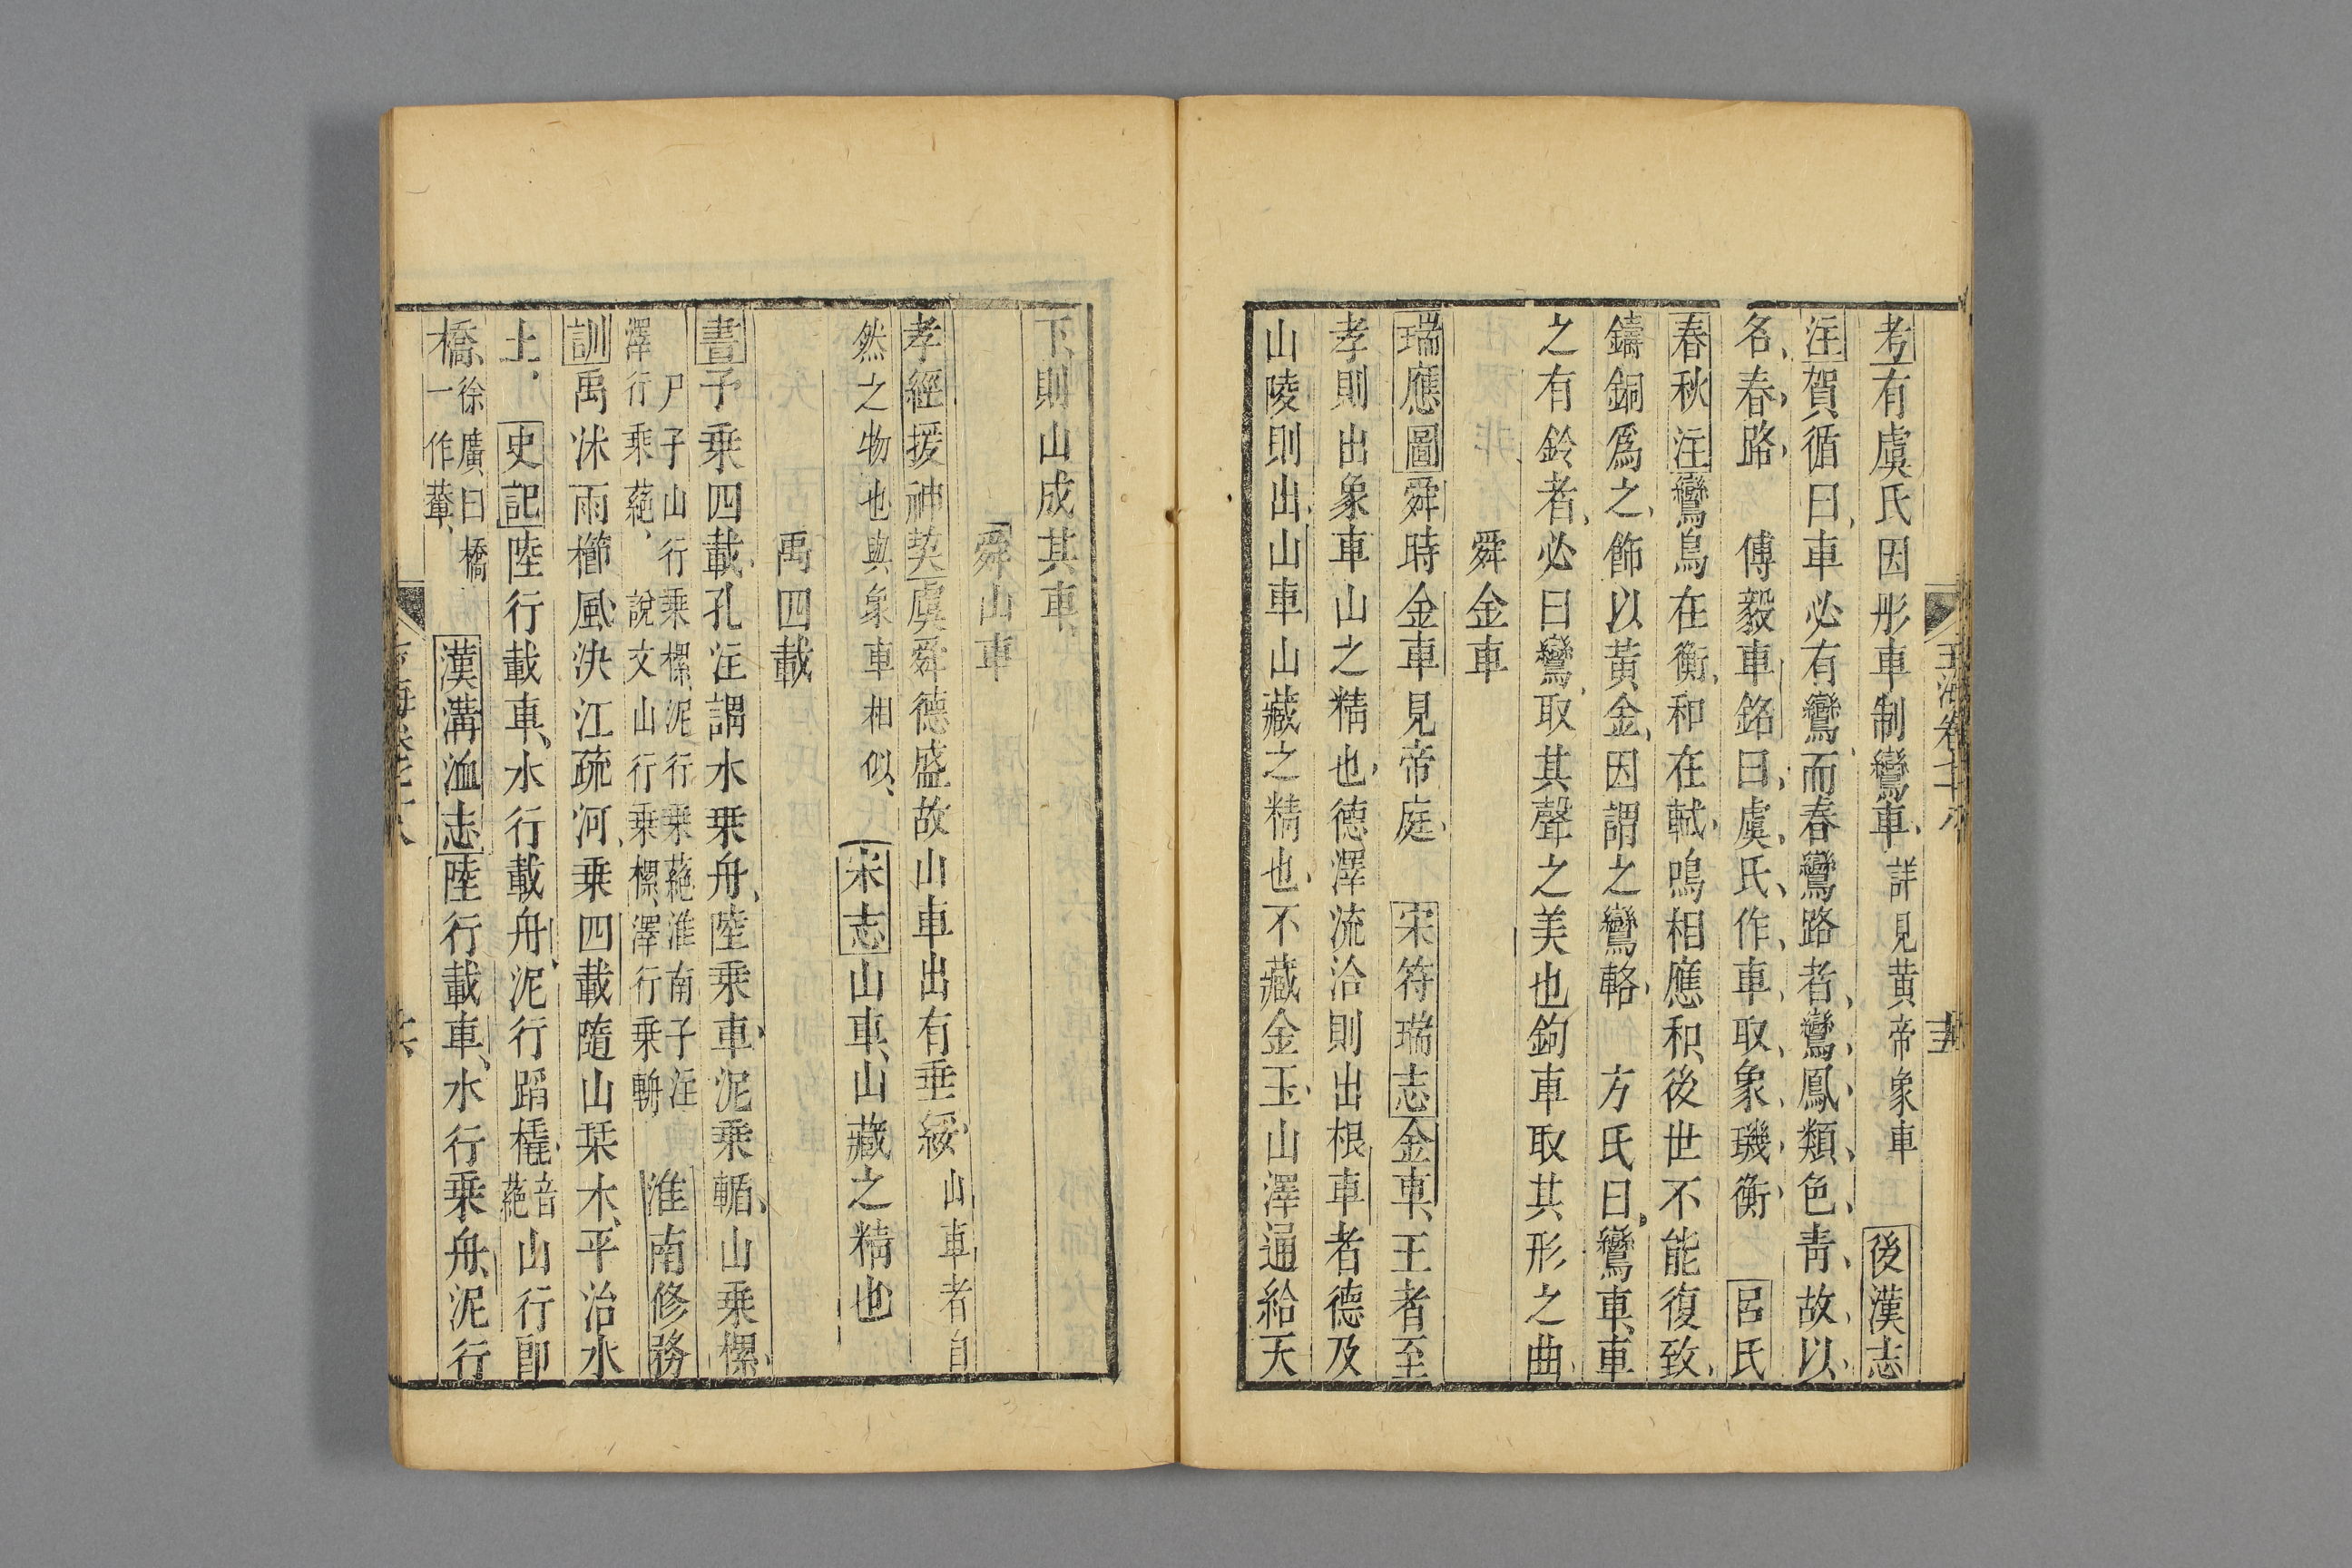 玉海卷七十八
十五
考有虞氏因彤車制鸞車詳見黄帝象車後漢志
注賀循曰車必有鸞而春鸞路者鸞鳳類色青故以
名春路傅毅車銘曰虞氏作車取象璣衡呂氏
春秋注鸞鳥在衡和在軾鳴相應和後世不能復致
鑄銅爲之飾以黃金因謂之鸞輅方氏曰鸞車車
之有鈴者必曰鸞取其聲之美也鉤車取其形之曲
舜金車
瑞應圖舜時金車見帝庭宋符瑞志金車王者至
孝則出象車山之精也德澤流洽則出根車者德及
山陵則出山車山藏之精也不藏金玉山澤通給天
下則山成其車
舜山車
孝經援神契虞舜德盛故山車出有垂綏山車者自
然之物也與象車相似宋志山車山藏之精也
禹四載
書予乘四載孔注謂水乗舟陸乗車泥乗輴山乗樏
尸子山行乗樏泥行乗蕝淮南子注
澤行乘蕝說文山行乗樏澤行乗輴淮南修務
訓禹沐雨櫛風決江疏河乗四載隨山栞木平治水
土史記陸行載車水行載舟泥行蹈橇音蕝山行卽
橋徐廣曰橋一作輂漢溝洫志陸行載車水行乗舟泥行